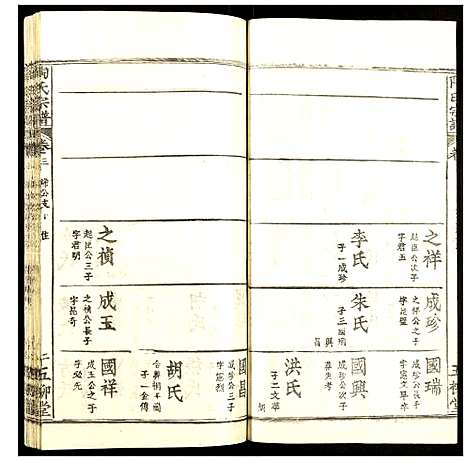 陶氏宗譜
卷
五柳堂
之祥
起臣公次子
字君五
李氏
子一成珍
成珍
之祥公之子
朱氏
子三國瑞
興
昌
國瑞
成珍公長子
國興
成珍公次子
洪氏
子二文
國昌
成珍公三子
胡氏
子一金傳
之禎
起臣公三子
字君明
成玉
之禎公長子
字昆奇
國祥
成玉公之子
陶氏宗譜
卷三
五柳堂